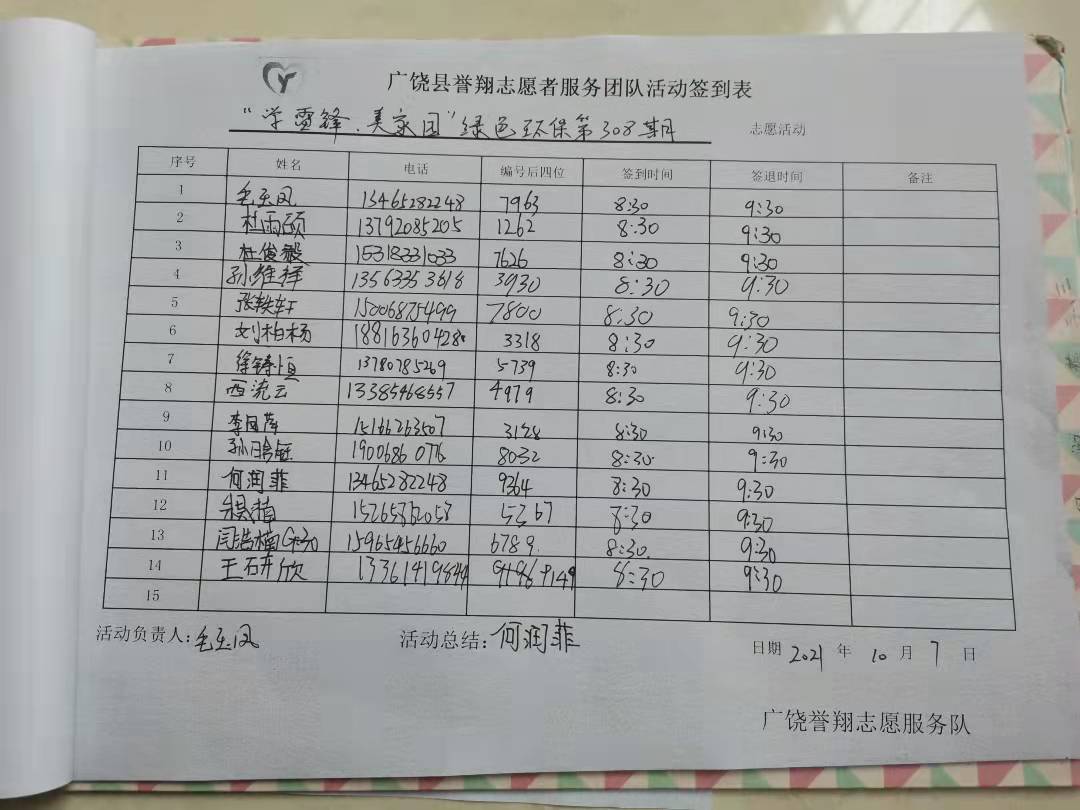 广饶县誉翔志愿者服务团队活动签到表
“学雷锋.美家园”绿色环保第308期 志愿活动
序号 姓名 电话 编号后四位 签到时间 签退时间 备注
1 毛玉凤 13465282248 7963 8:30 9:30
2 杜雨硕 13792085205 1262 8:30 9:30
3 杜俊毅 15318331033 7626 8:30 9:30
4 孙维择 13563353618 3930 8:30 9:30
5 张轶轩 15006875499 7800 8:30 9:30
6 刘柏杨 18816360428 3318 8:30 9:30
7 徐铸恒 13780785269 5739 8:30 9:30
8 西流云 13385468557 4979 8:30 9:30
9 李 15166263507 3128 8:30 9:30
10 孙晗钰 1900686076 8032 8:30 9:30
11 何润菲 13465282248 9364 8:30 9:30
12 5367 8:30 9:30
13 闫浩楠 15965456660 6789 8:30 9:30
14 王 13361419844 8:30 9:30
15
活动负责人:毛玉凤 活动总结:何润菲 日期 2021 年 10 月 7 日
广饶誉翔志愿服务队